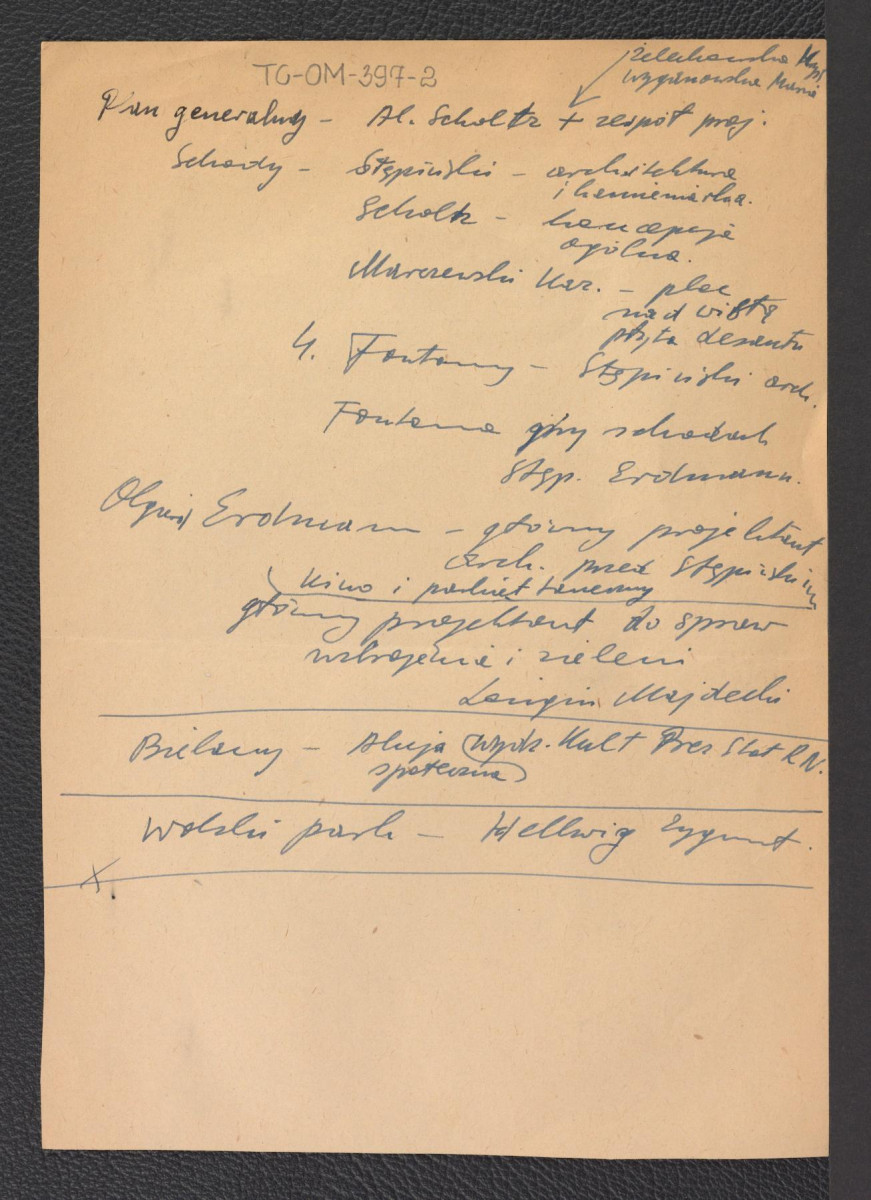 TG-OM-397-2
Żelechowska
Wyganowska Maria
Plan generalny – Al. Scholtz + zespół proj.
Schody – Stępiński – architektura
i kamieniarka.
Scholtz – koncepcja
ogólna.
Marczewski Kaz. – plac
nad Wisłą
płyta desantu
4. Fontanny – Stępiński arch.
Fontanna przy schodach
Stęp. Erdmann.
Olgierd Erdmann – główny projektant
arch. przed Stępińskim
Kino i parkiet taneczny
główny projektant do spraw
uzbrojenia i zieleni
Longin Majdecki
Bielany – Akcja (Wydz. Kult Prez Stoł R N.
społeczna)
Wolski park – Hellwig Zygmunt.
X